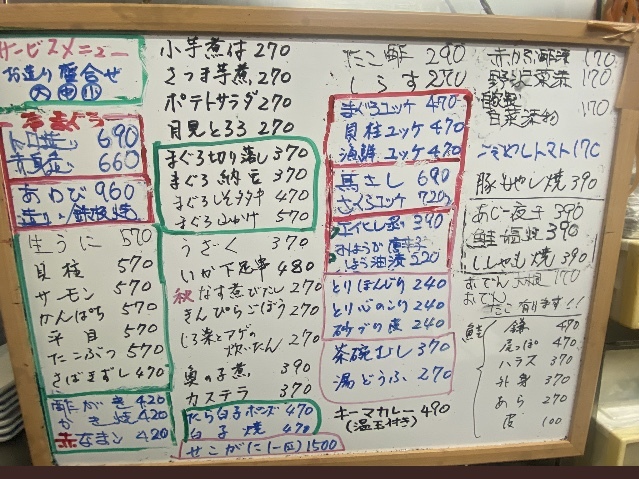 サービスメニュー
お造り盛合せ
大 中 小
690
赤身造り 660
あわび 960
生うに 570
貝柱 570
サーモン 570
かんぱち 570
平目 570
たこぶつ 570
さばきずし 470
酢がき 420
かき焼 420
赤なまこ 420
小芋煮付 270
さつま芋煮 270
ポテトサラダ 270
月見とろろ 270
まぐろ切り落し 370
まぐろ納豆 370
まぐろしそタタキ 470
まぐろ山かけ 570
うざく 370
いか下足串 480
秋なす煮びたし 270
きんぴらごぼう 270
270
魚の子煮 390
カステラ 370
たら白子ポンズ 470
白子焼 470
せこがに(一匹) 1500
たこ酢 290
しらす 270
まぐろユッケ 470
貝柱ユッケ 470
海鮮ユッケ 470
馬さし 690
さくらユッケ 720
390
しょう油漬 220
とりはんじり 240
とり心のこり 240
砂づり皮 240
茶碗むし 370
湯どうふ 270
キーマカレー 490
(温玉付き)
170
野沢菜漬 170
白菜漬物 170
トマト 170
豚もやし焼 390
あじ一夜干 390
鮭塩焼 390
ししゃも焼 390
おでん 大根 170
おでん たこ有ります!!
鮭 鎌 470
尾っぽ 470
ハラス 370
外身 370
あら 270
皮 100